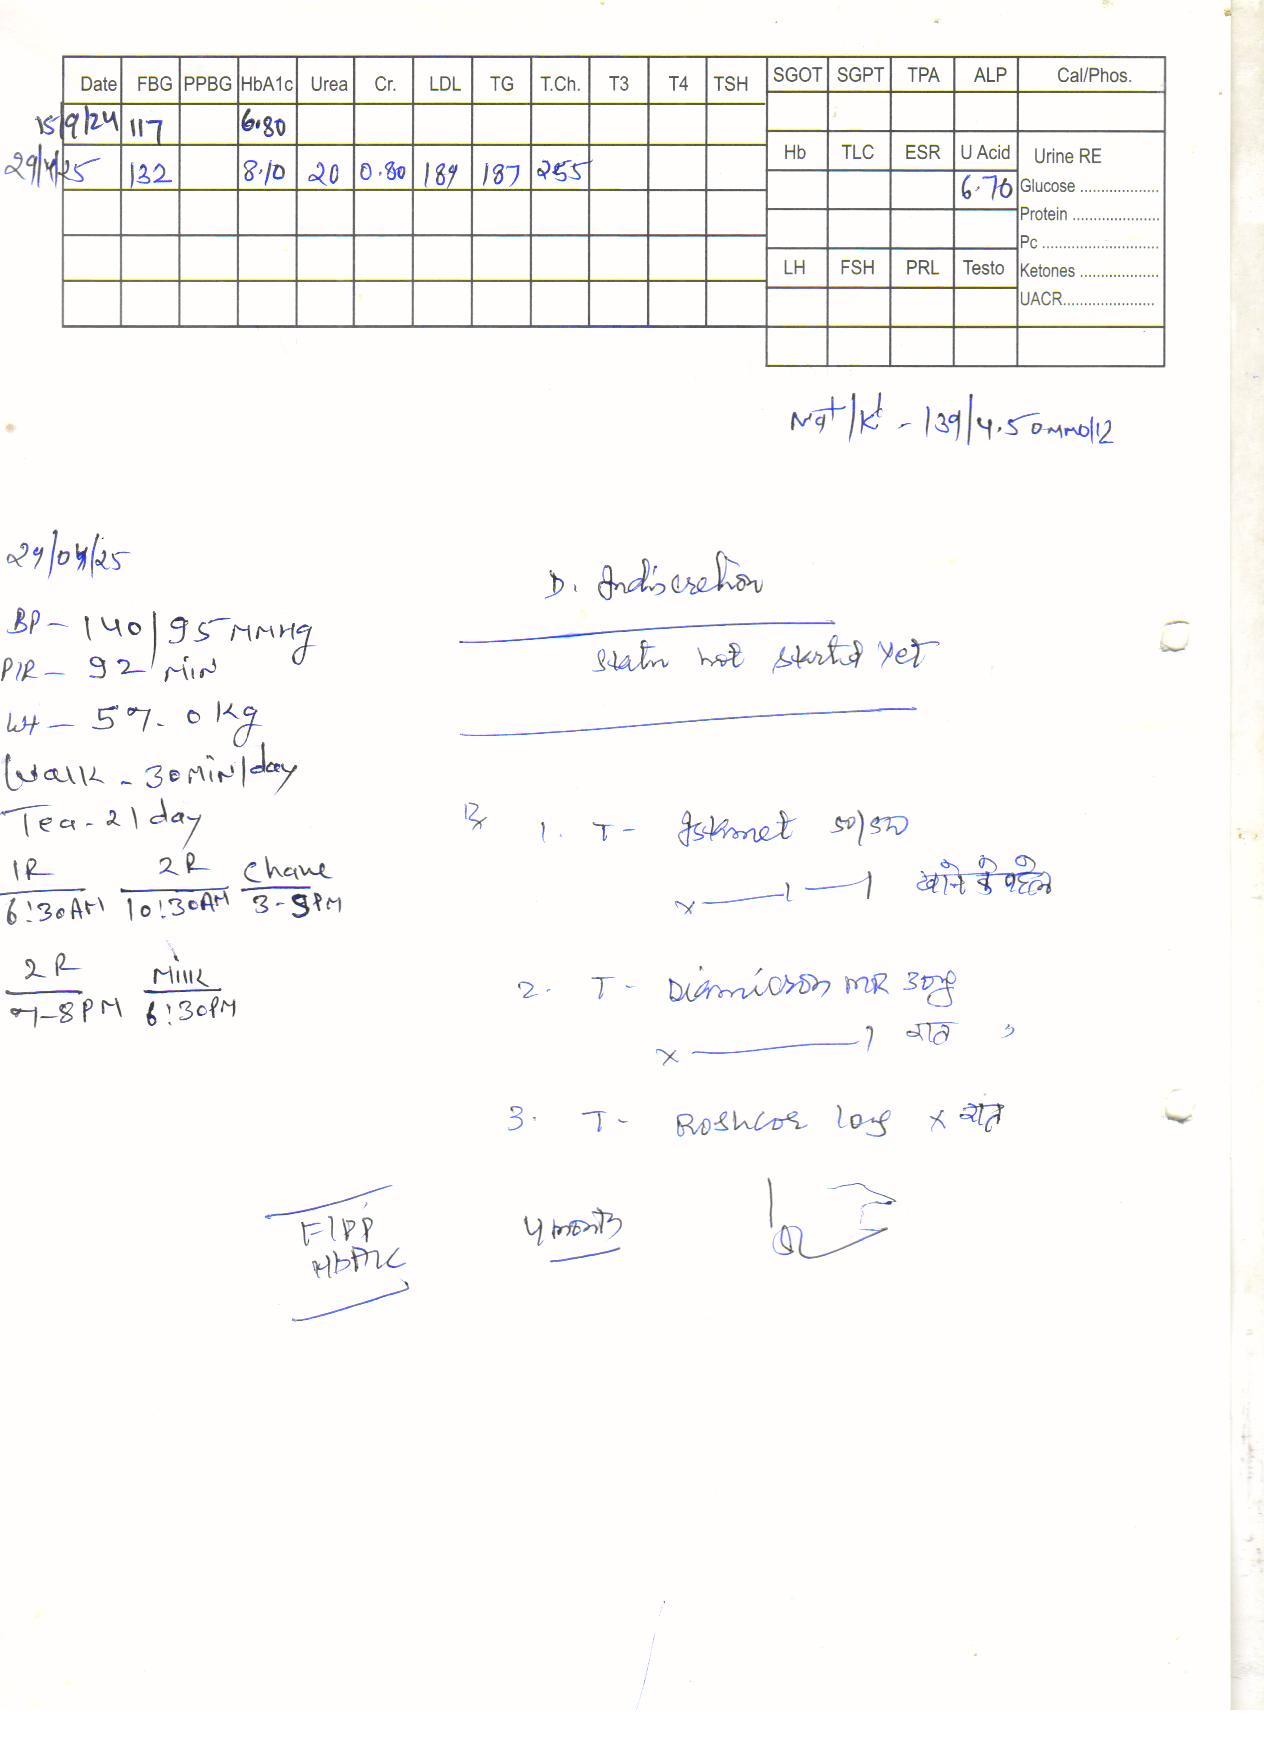 Date FBG PPBG HbA1c Urea Cr. LDL TG T.Ch. T3 T4 TSH
15/9/24 117 6.80
29/4/25 132 8.10 20 0.80 189 187 255
SGOT SGPT TPA ALP Cal/Phos.
Hb TLC ESR U Acid Urine RE
6.70 Glucose ..................
Protein .....................
Pc ...........................
LH FSH PRL Testo Ketones ..................
UACR......................
Na+/K+ - 139/4.50 mmol/L
29/04/25
BP - 140/95 MMHg
P/R - 92/Min
Wt - 57.0 Kg
Walk - 30 Min/day
Tea - 2/day
1R 2R Chane
6:30AM 10:30AM 3-5PM
2R Milk
7-8PM 6:30PM
D. Indiscretion
Statin not started yet
Rx
1. T- Istamet 50/500
x — 1 — 1 खाने के पहले
2. T- Diamicron MR 30mg
x — 1 रात "
3. T- Roshcor 10mg x रात
F/PP
HbA1C
4 months